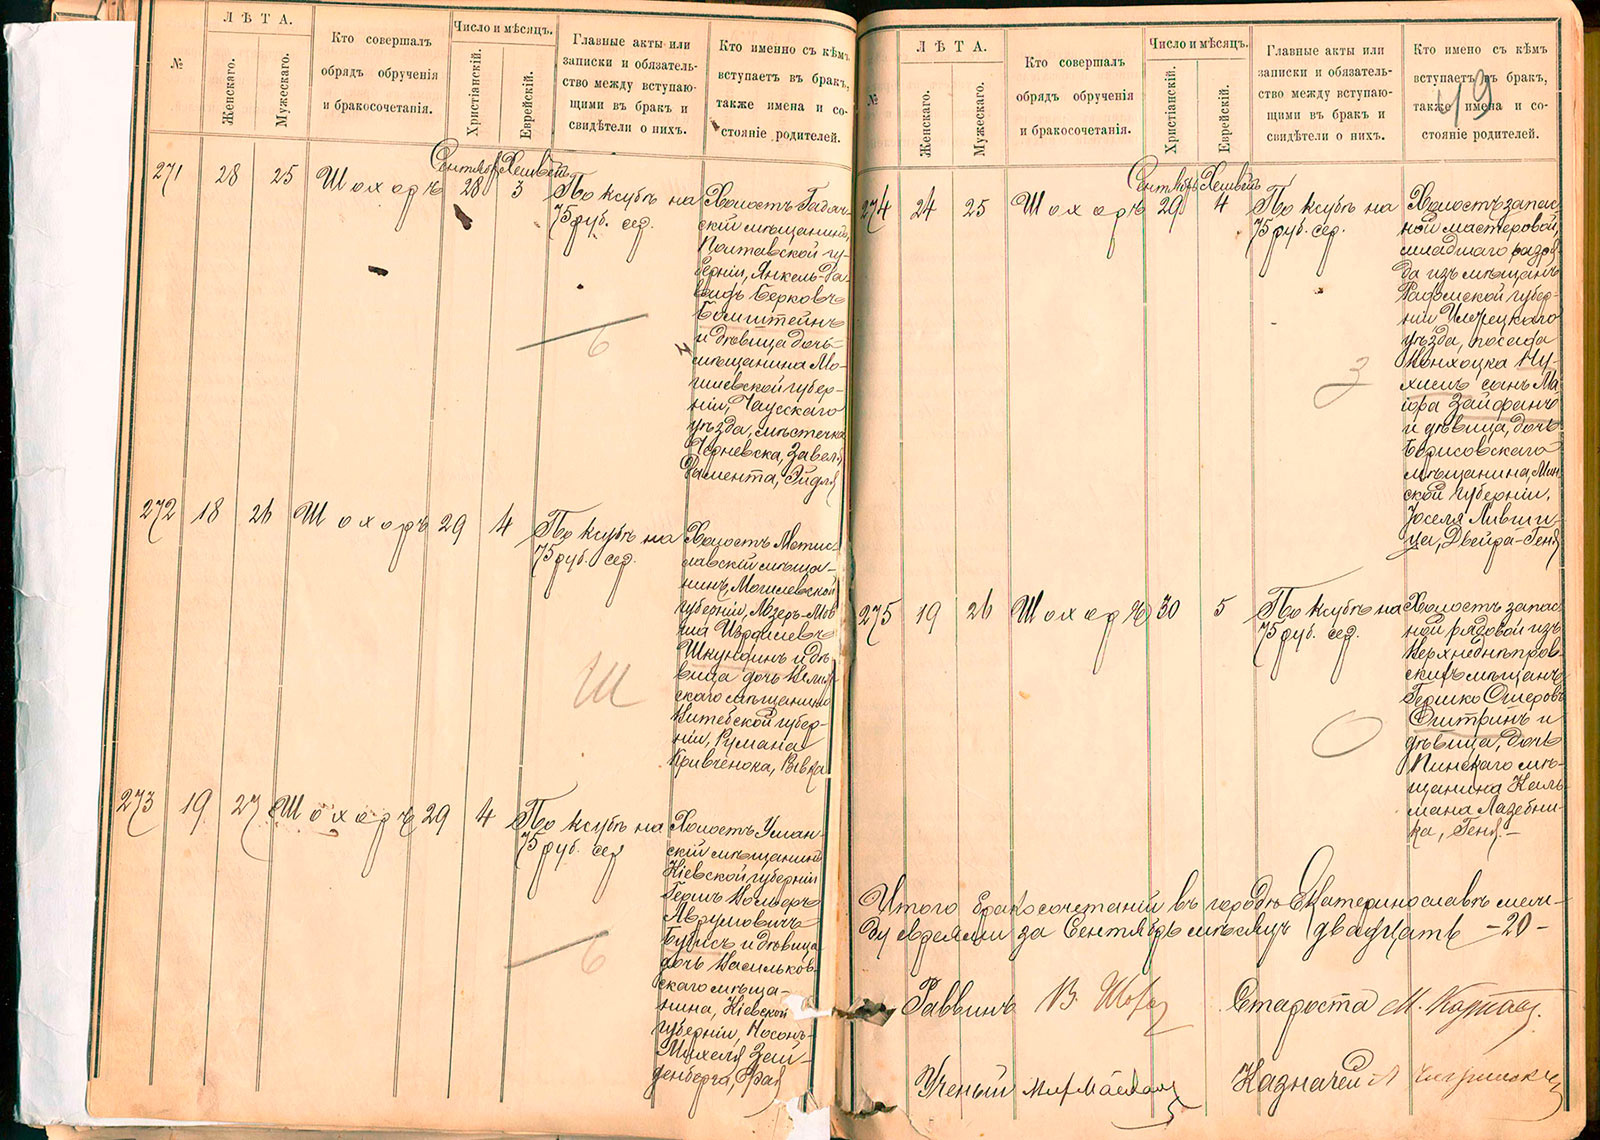 №
ЛѢТА.
Женскаго.
Мужескаго.
Кто совершалъ
обрядъ обрученія
и бракосочетанія.
Число и мѣсяцъ.
Христіанскій.
Еврейскій.
Главные акты или
записки и обязатель-
ство между вступаю-
щими въ бракъ и
свидѣтели о нихъ.
Кто именно съ кѣмъ
вступаетъ въ бракъ,
также имена и со-
стояніе родителей.
Сентябрь Хешвонъ
271 28 25 Шохоръ 28 3
По ксубѣ на
75 руб. сер.
Холостъ Гадяч-
скій мѣщанинъ,
Полтавской гу-
берніи, Янкель-Да-
видъ Берковъ
Бомштейнъ
и дѣвица дочь
мѣщанина Мо-
гилевской губер-
ніи, Чаусскаго
уѣзда, мѣстечка
Черневска, Завеля
Фамента, Эйдля
Б
272 18 26 Шохоръ 29 4
По ксубѣ на
75 руб. сер.
Холостъ Мстис-
лавскій мѣща-
нинъ, Могилевской
губерніи, Лѣзеръ-Мов-
ша Израилевъ
Шкундинъ и дѣ-
вица дочь Велиж-
скаго мѣщанина
Витебской губер-
ніи, Румана
Кривченока, Ривка
Ш
273 19 27 Шохоръ 29 4
По ксубѣ на
75 руб. сер
Холостъ Уман-
скій мѣщанинъ
Кіевской губерніи
Гершъ Вольфъ
Аврумовичъ
Бубисъ и дѣвица
дочь Васильков-
скаго мѣща-
нина, Кіевской
губерніи, Носонъ-
Михеля Зай-
денберга, Фрая
Б
№
ЛѢТА.
Женскаго.
Мужескаго.
Кто совершалъ
обрядъ обрученія
и бракосочетанія.
Число и мѣсяцъ.
Христіанскій.
Еврейскій.
Главные акты или
записки и обязатель-
ство между вступаю-
щими въ бракъ и
свидѣтели о нихъ.
Кто имено съ кѣмъ
вступаетъ въ бракъ,
также имена и со-
стояніе родителей.
49
Сентябрь Хешвонъ
274 24 25 Шохоръ 29 4
По ксубѣ на
75 руб. сер.
Холостъ запас-
ной мастеровой,
младшаго разря-
да изъ мѣщанъ
Радомской губер-
ніи Илжецкаго
уѣзда, посада
Вонхоцка Ну-
химъ сынъ Ма-
іора Зайфанъ
и дѣвица, дочь
Борисовскаго
мѣщанина, Мин-
ской губерніи,
Іоселя Лившиц-
ца, Двейра-Геня
З
275 19 26 Шохоръ 30 5
По ксубѣ на
75 руб. сер.
Холостъ запас-
ной рядовой изъ
Верхнеднѣпров-
скихъ мѣщанъ
Гершко Ошеровъ
Оштринъ и
дѣвица, дочь
Пинскаго мѣ-
щанина Каль-
мана Лазебни-
ка, Геня.
О
Итого бракосочетаній въ городѣ Екатеринославѣ меж-
ду евреями за Сентябрь мѣсяцъ двадцать -20-
Раввинъ В. Шохоръ Староста М.
Ученый Казначей А